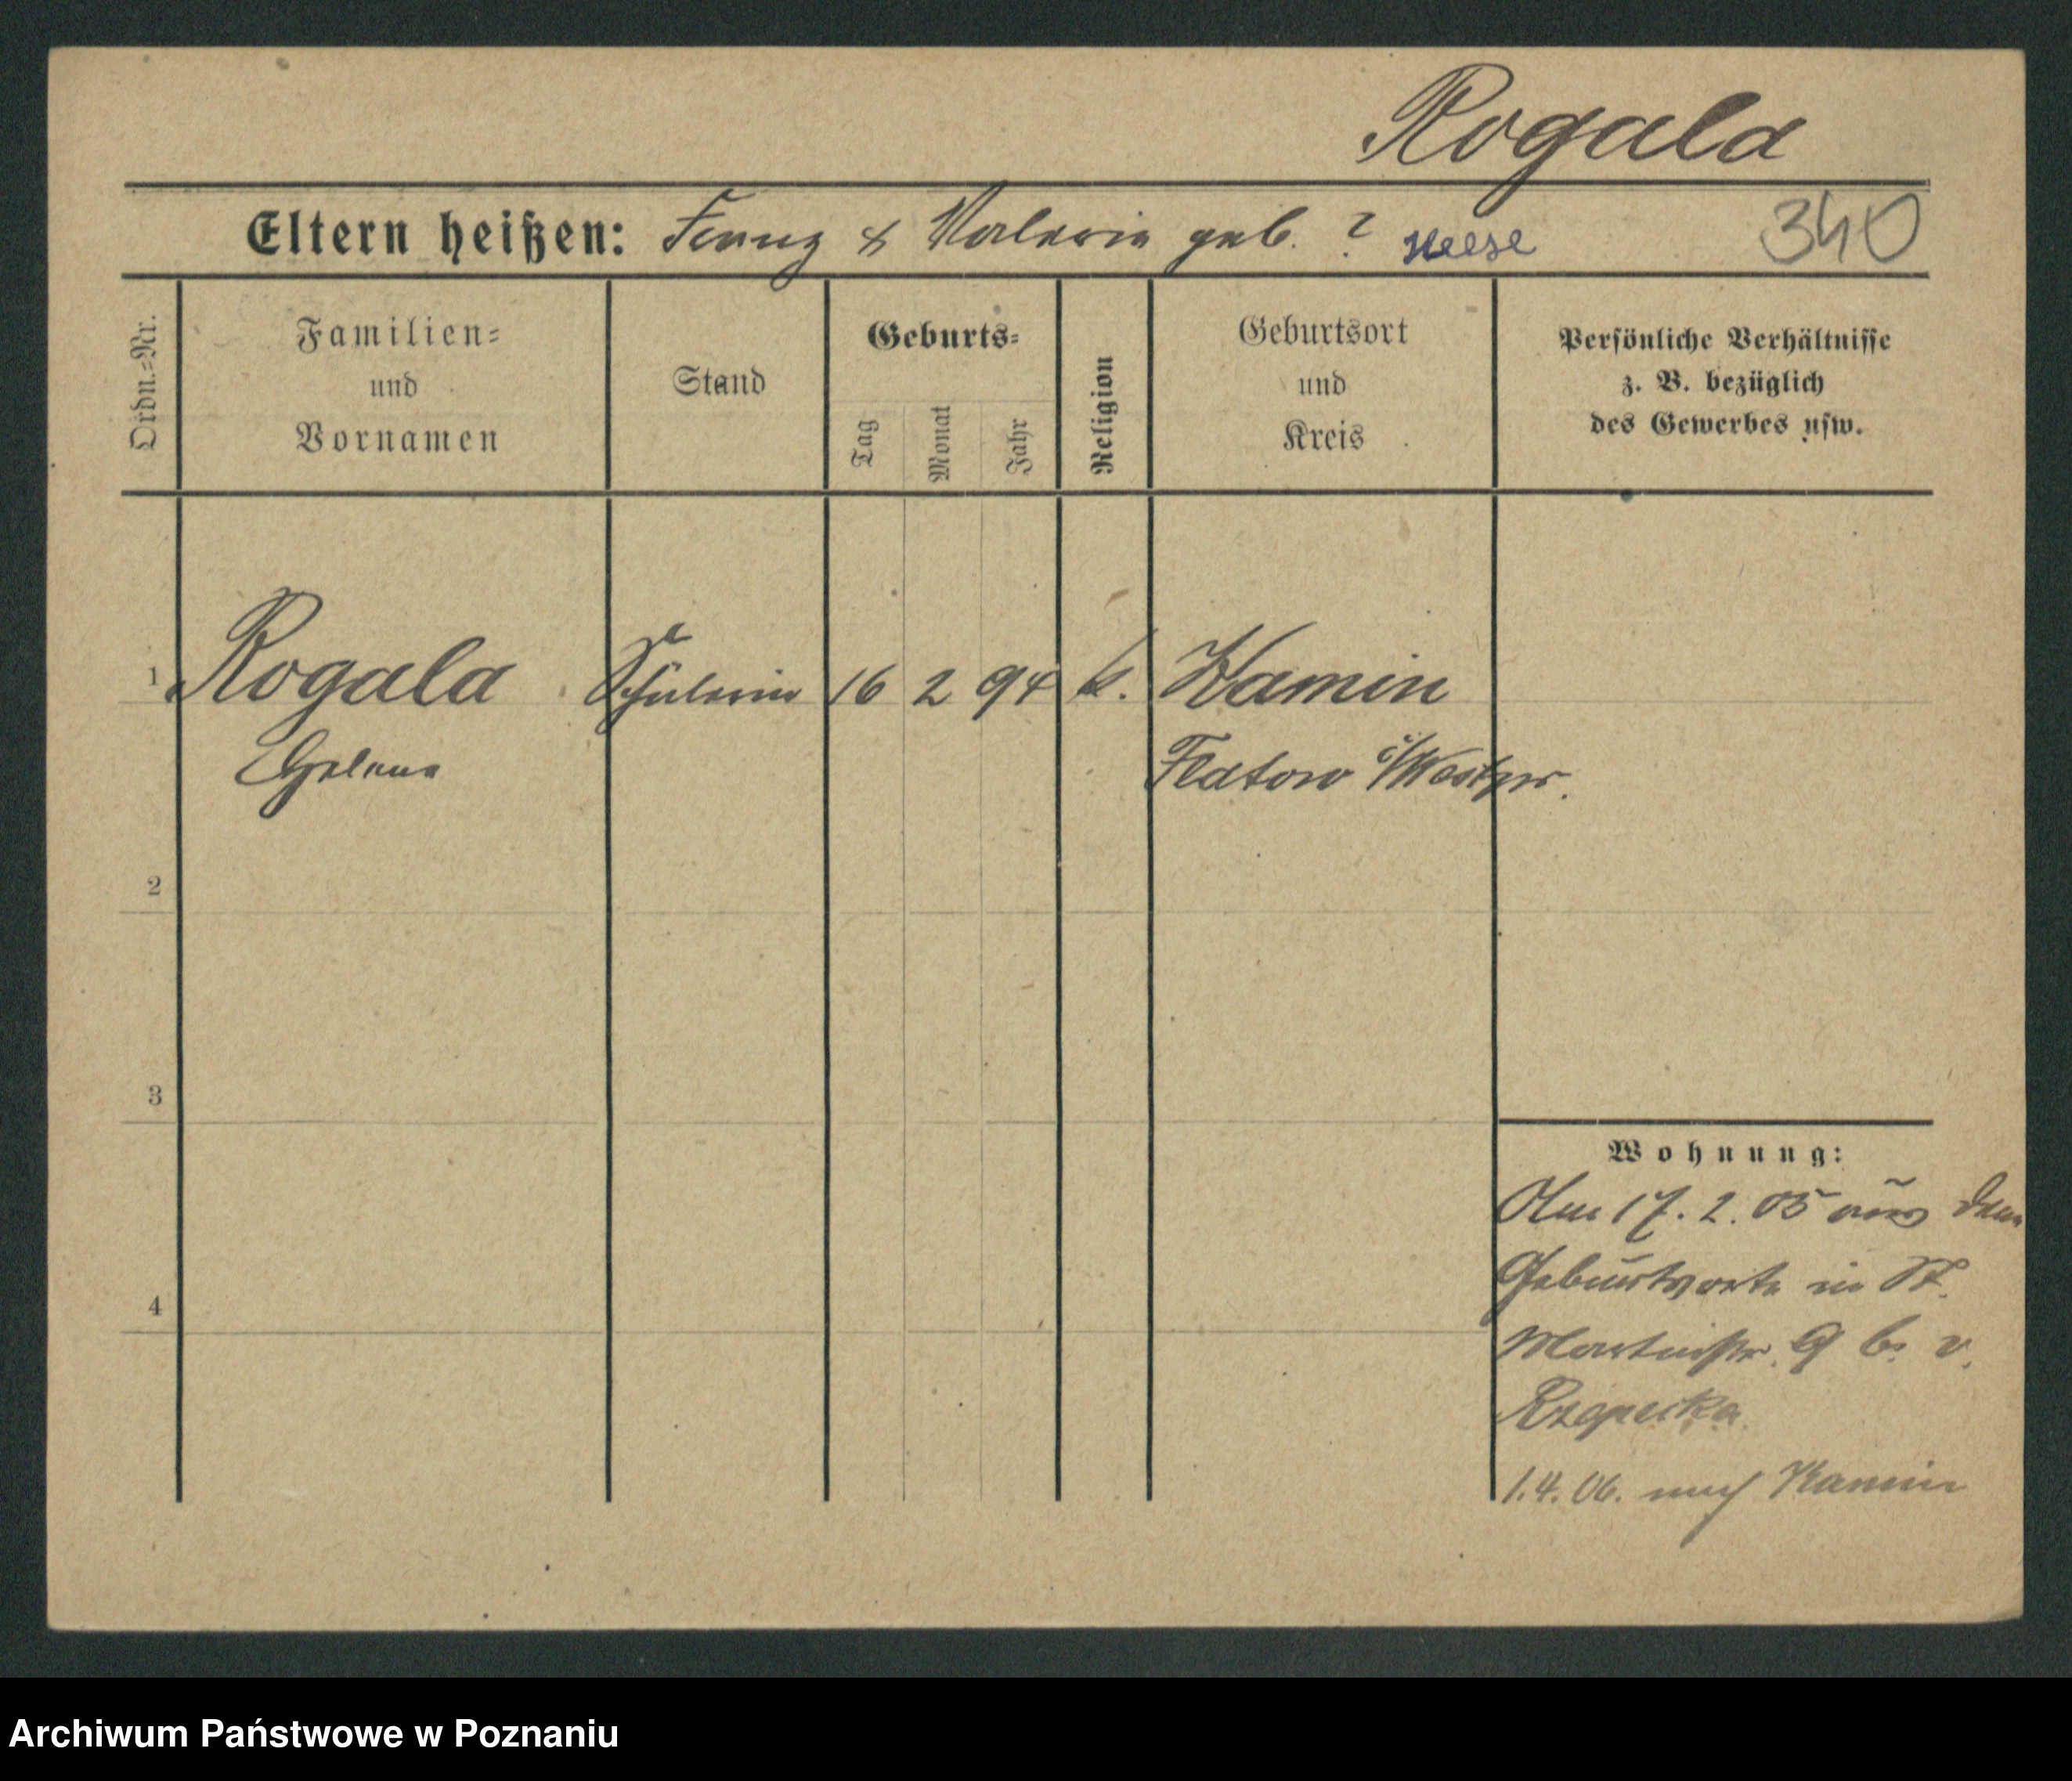 Rogala
Eltern heißen: Franz & Valeria geb. ? Heese
340
Ordn.=Nr.
Familien=
und
Vornamen
Stand
Geburts=
Tag
Monat
Jahr
Religion
Geburtsort
und
Kreis
Persönliche Verhältnisse
z. B. bezüglich
des Gewerbes usw.
1 Rogala Schülerin 16 2 94 k. Kamin
Helena Flatow i/Westpr.
2
3
4
Wohnung:
Am 17. 2. 05 aus dem
Geburtsorte in St.
Martinstr. 9 b. v.
Rzepecka
1.4.06. nach Kamin
Archiwum Państwowe w Poznaniu